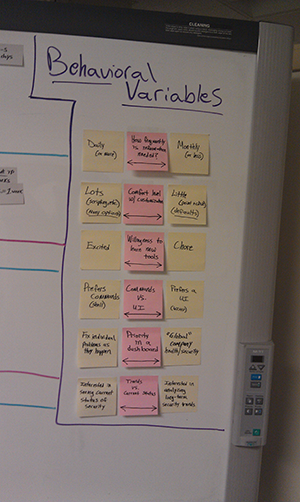 CLEANING
Behavioral
Variables
Daily
(or more)
How frequently
is information
needed?
Monthly
(or less)
Lots
Comfort level
w/ customization
Little
(defaults)
Excited
Willingness to
learn new
tools
Chore
Prefers
commands
(shell)
Commands
vs.
UI
Prefers a
UI
Fix individual
problems as
they happen
Priority
in a
dashboard
"Global"
company
health/security
Interested in
seeing current
states of
security
Trends
vs.
Current states
Interested in
analyzing
long-term
security trends